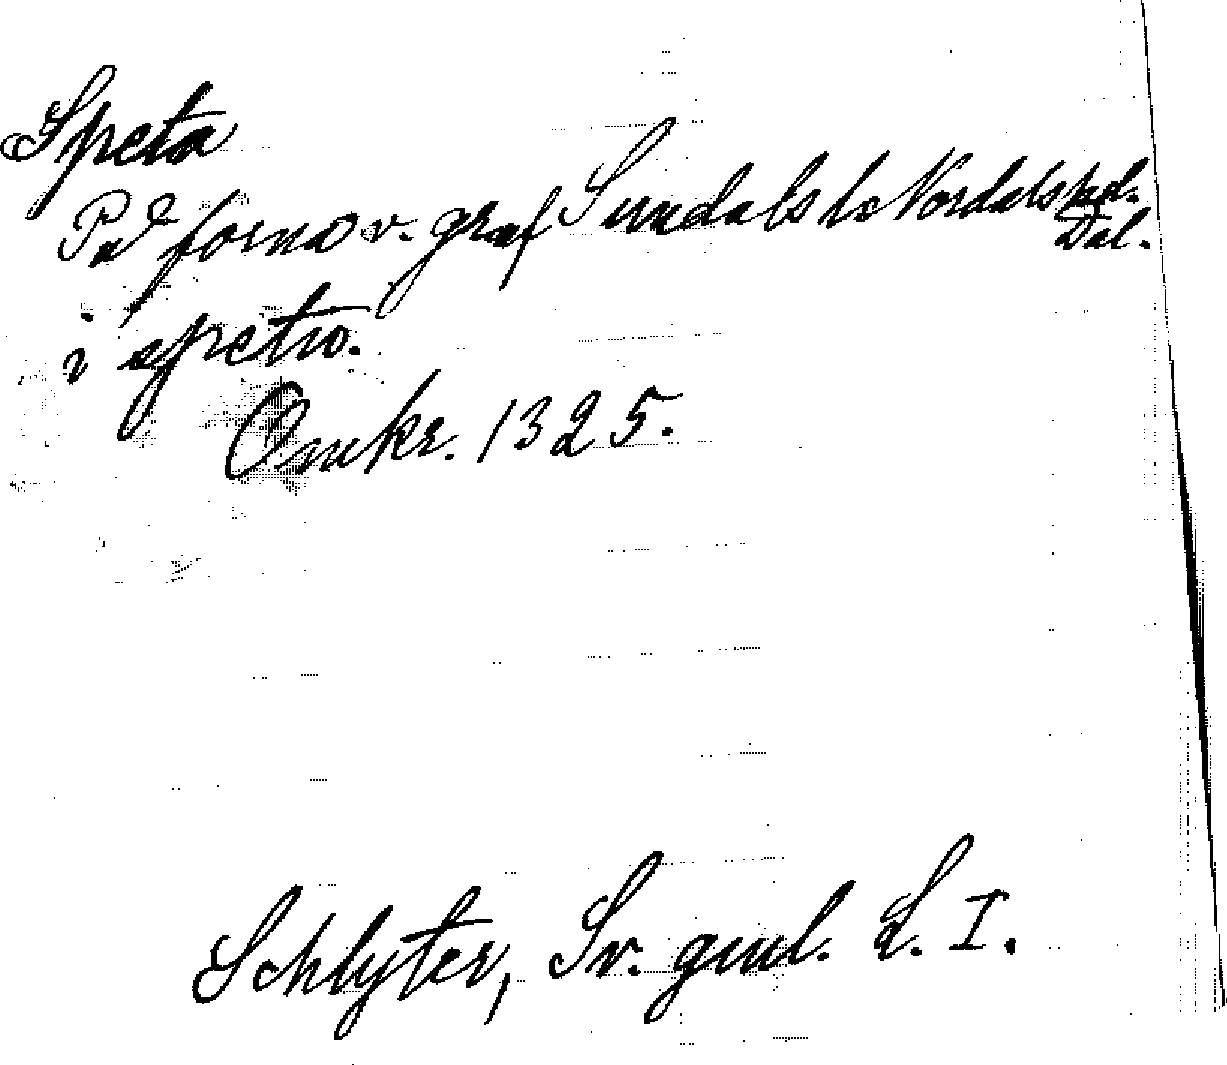 Speta
På forna v. gräf Sundals k Nordals hd.
Dal.
i spetio.
Omkr. 1325.
Schlyter, Sv. gml. L. I.